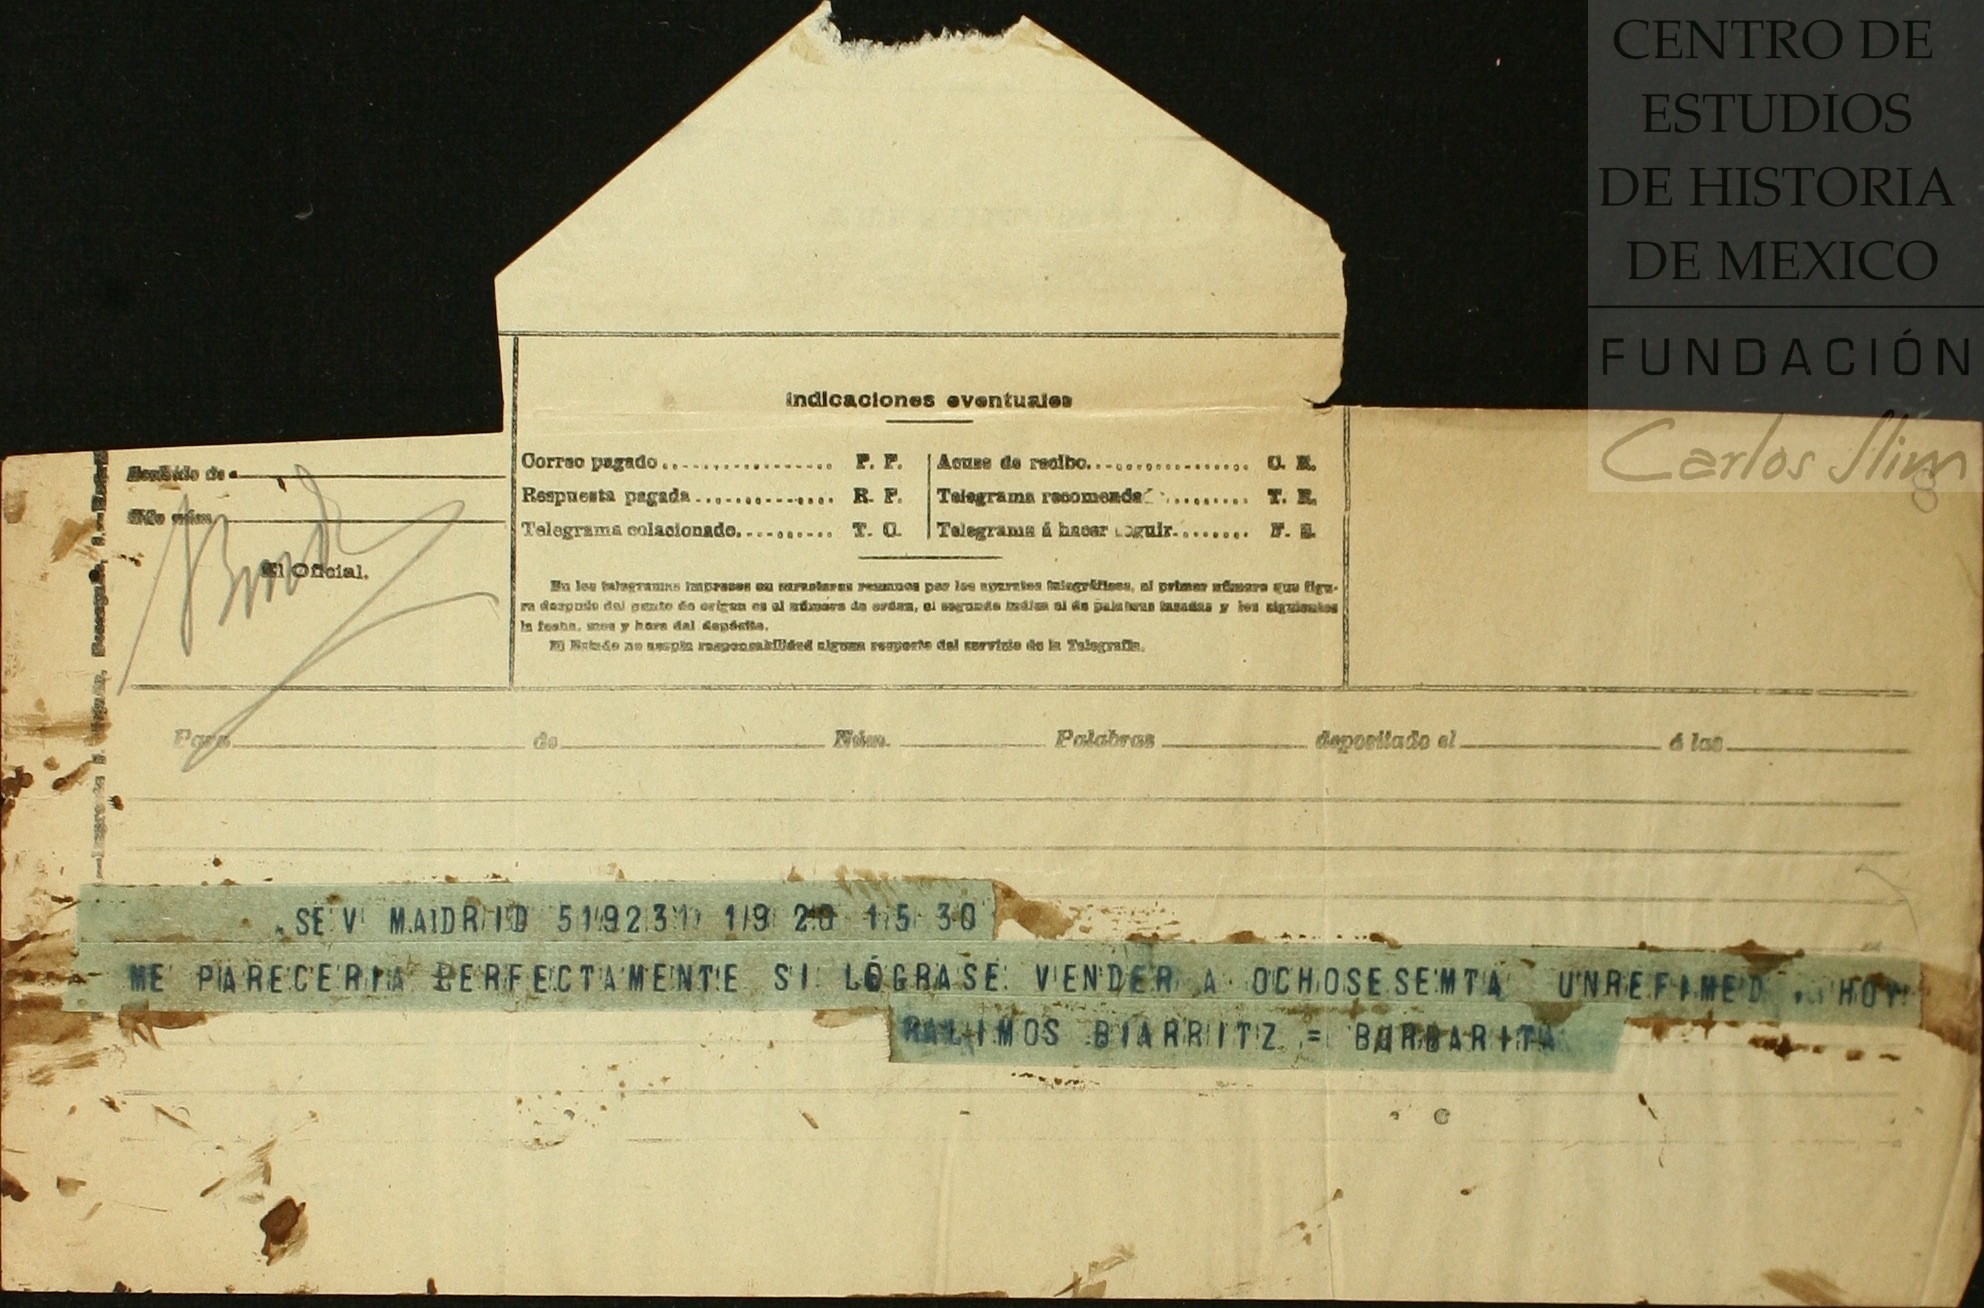 CENTRO DE
ESTUDIOS
DE HISTORIA
DE MEXICO
FUNDACIÓN
Carlos Slim
Indicaciones eventuales
Correo pagado P. P. Acuse de recibo C. R.
Respuesta pagada R. P. Telegrama recomendad T. R.
Telegrama colacionado T. C. Telegrama á hacer seguir F. S.
Recibido de
El Oficial.
En los telegramas impresos en caracteres romanos por los aparatos telegráficos, el primer número que figu-
ra después del punto de origen es el número de orden, el segundo indica el de palabras tasadas y los siguientes
la fecha, mes y hora del depósito.
El Estado no acepta responsabilidad alguna respecto del servicio de la Telegrafía.
Para de Núm. Palabras depositado el á las
SEV MADRID 519231 19 20 15 30
ME PARECERIA PERFECTAMENTE SI LOGRASE VENDER A OCHOSESEMTA UNREFIMED . HOY
RALIMOS BIARRITZ = BURBARITA